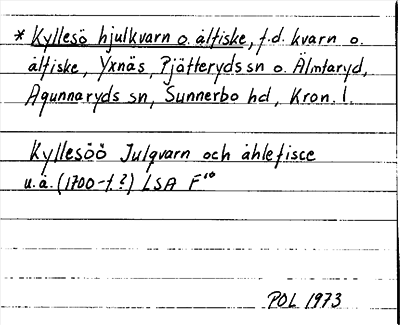 * Kyllesö hjulkvarn o. ålfiske, f.d. kvarn o.
ålfiske, Yxnäs, Pjätteryds sn o. Älmtaryd,
Agunnaryds sn, Sunnerbo hd, Kron. l.
Kyllesöö Julqvarn och åhlefisce
u.å. (1700-t.?) LSA F¹⁰
POL 1973